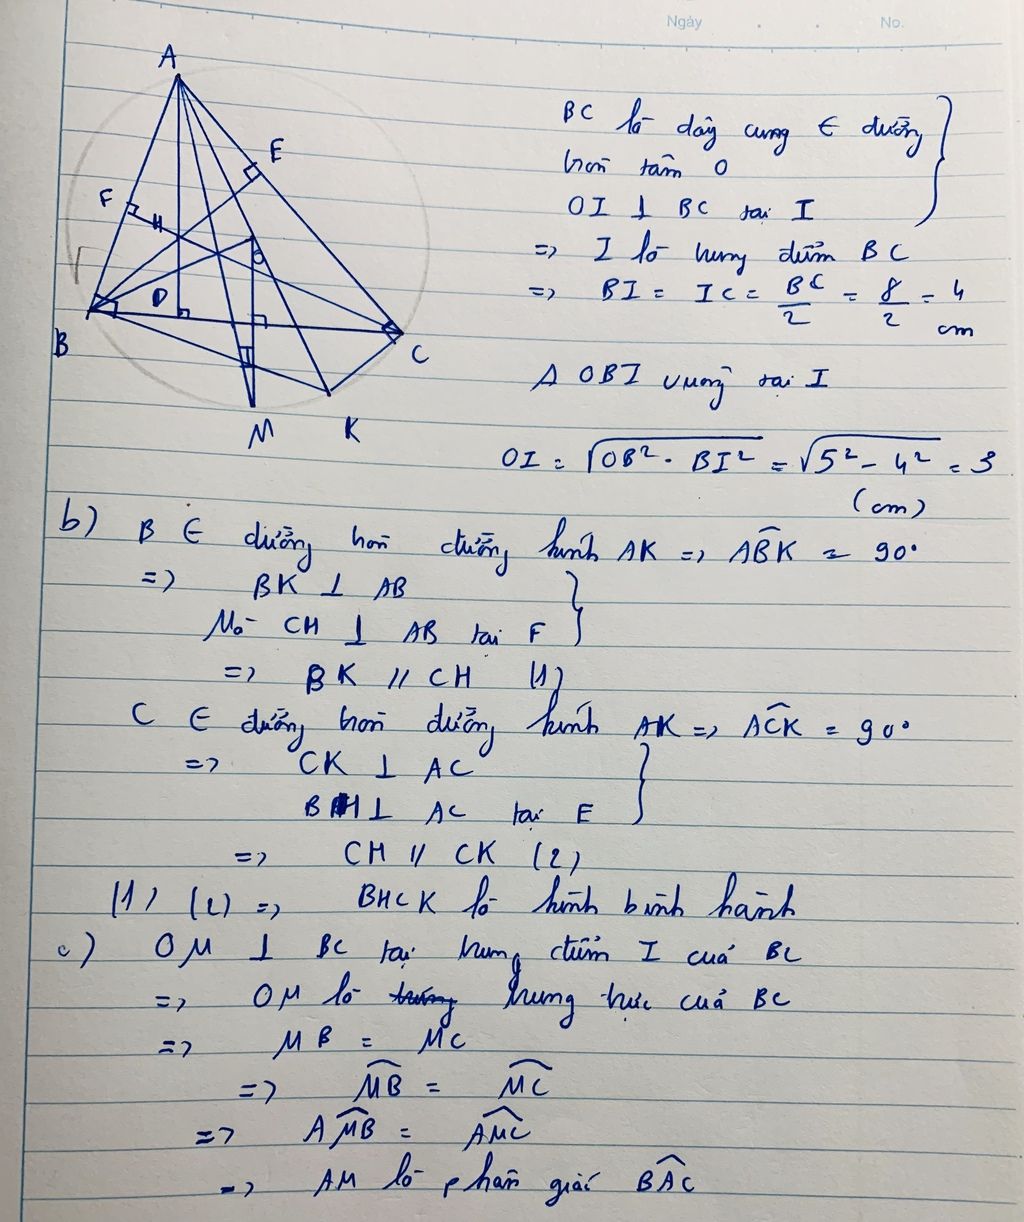 Ngày . . No.
A
E
F
H
O
D
B
C
M
K
BC là dây cung ∈ đường
tròn tâm O
OI ⊥ BC tại I
=> I là trung điểm BC
=> BI = IC = BC/2 = 8/2 = 4
cm
Δ OBI vuông tại I
OI = √(OB² - BI²) = √(5² - 4²) = 3
(cm)
b) B ∈ đường tròn đường kính AK => ABK̂ = 90°
=> BK ⊥ AB
Mà CH ⊥ AB tại F
=> BK // CH (1)
C ∈ đường tròn đường kính AK => ACK̂ = 90°
=> CK ⊥ AC
BH ⊥ AC tại E
=> CH // CK (2)
(1) (2) => BHCK là hình bình hành
c) OM ⊥ BC tại trung điểm I của BC
=> OM là trung trực của BC
=> MB = MC
=> M͡B = M͡C
=> AM͡B = AM͡C
=> AM là phân giác BAC̑